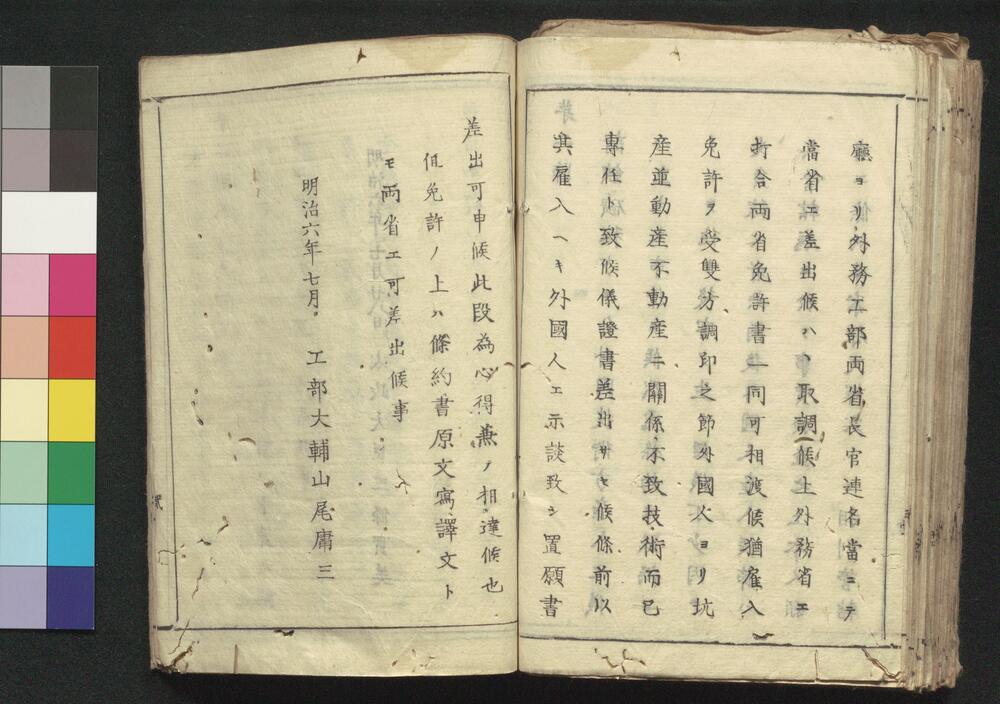 廳ヨリ外務工部両省長官連名當ニテ
當省ニ差出候ハヽ取調候上外務省エ
打合両省免許書一同可相渡候猶雇入
免許ヲ受雙方調印之節外國人ヨリ坑
産並動産不動産ニ關係不致技術而已
専任ト致候儀證書差出サセ候條前以
其雇入ヘキ外國人エ示談致シ置願書
差出可申候此段為心得兼ノ相達候也
但免許ノ上ハ條約書原文寫譯文ト
モ両省エ可差出候事
明治六年七月 工部大輔山尾庸三